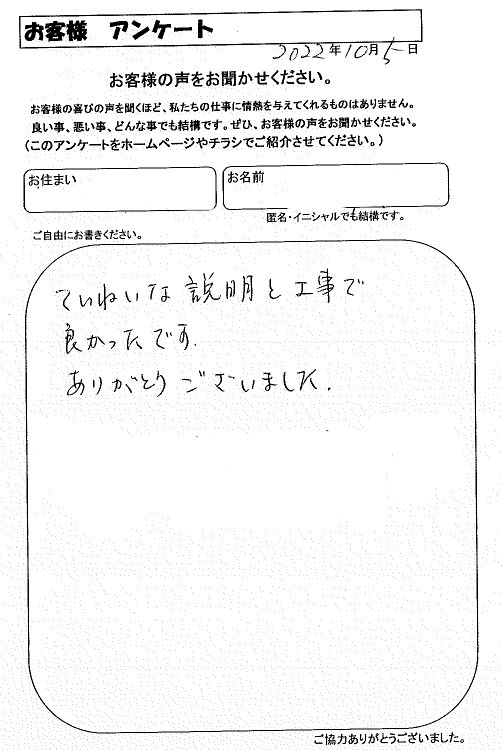 お客様 アンケート
2022年10月5日
お客様の声をお聞かせください。
お客様の喜びの声を聞くほど、私たちの仕事に情熱を与えてくれるものはありません。
良い事、悪い事、どんな事でも結構です。ぜひ、お客様の声をお聞かせください。
(このアンケートをホームページやチラシでご紹介させてください。)
お住まい
お名前
匿名・イニシャルでも結構です。
ご自由にお書きください。
ていねいな説明と工事で
良かったです.
ありがとうございました.
ご協力ありがとうございました。